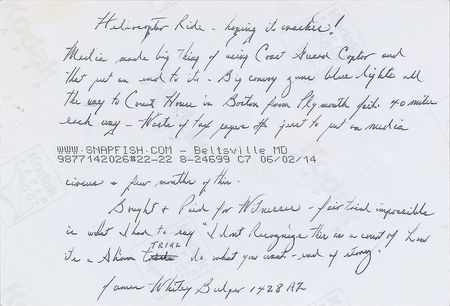 Helicopter Ride - hoping it crashes!
Media made big thing of using Coast Guard Coptor and
that put an end to it - Big convoy guns blue lights all
the way to Court House in Boston from Plymouth jail. 40 miles
each way - Waste of tax payers $ just to put on media
WWW.SNAPFISH.COM - Beltsville MD
9877142026#22-22 8-24699 C7 06/02/14
circus a few months of this.
Bought & Paid for Witnesses - fair trial impossible
is what I had to say "I dont Recognize this as a court of Law
its a Sham TRIAL do what you want - end of story"
James Whitey Bulger 1428 AZ